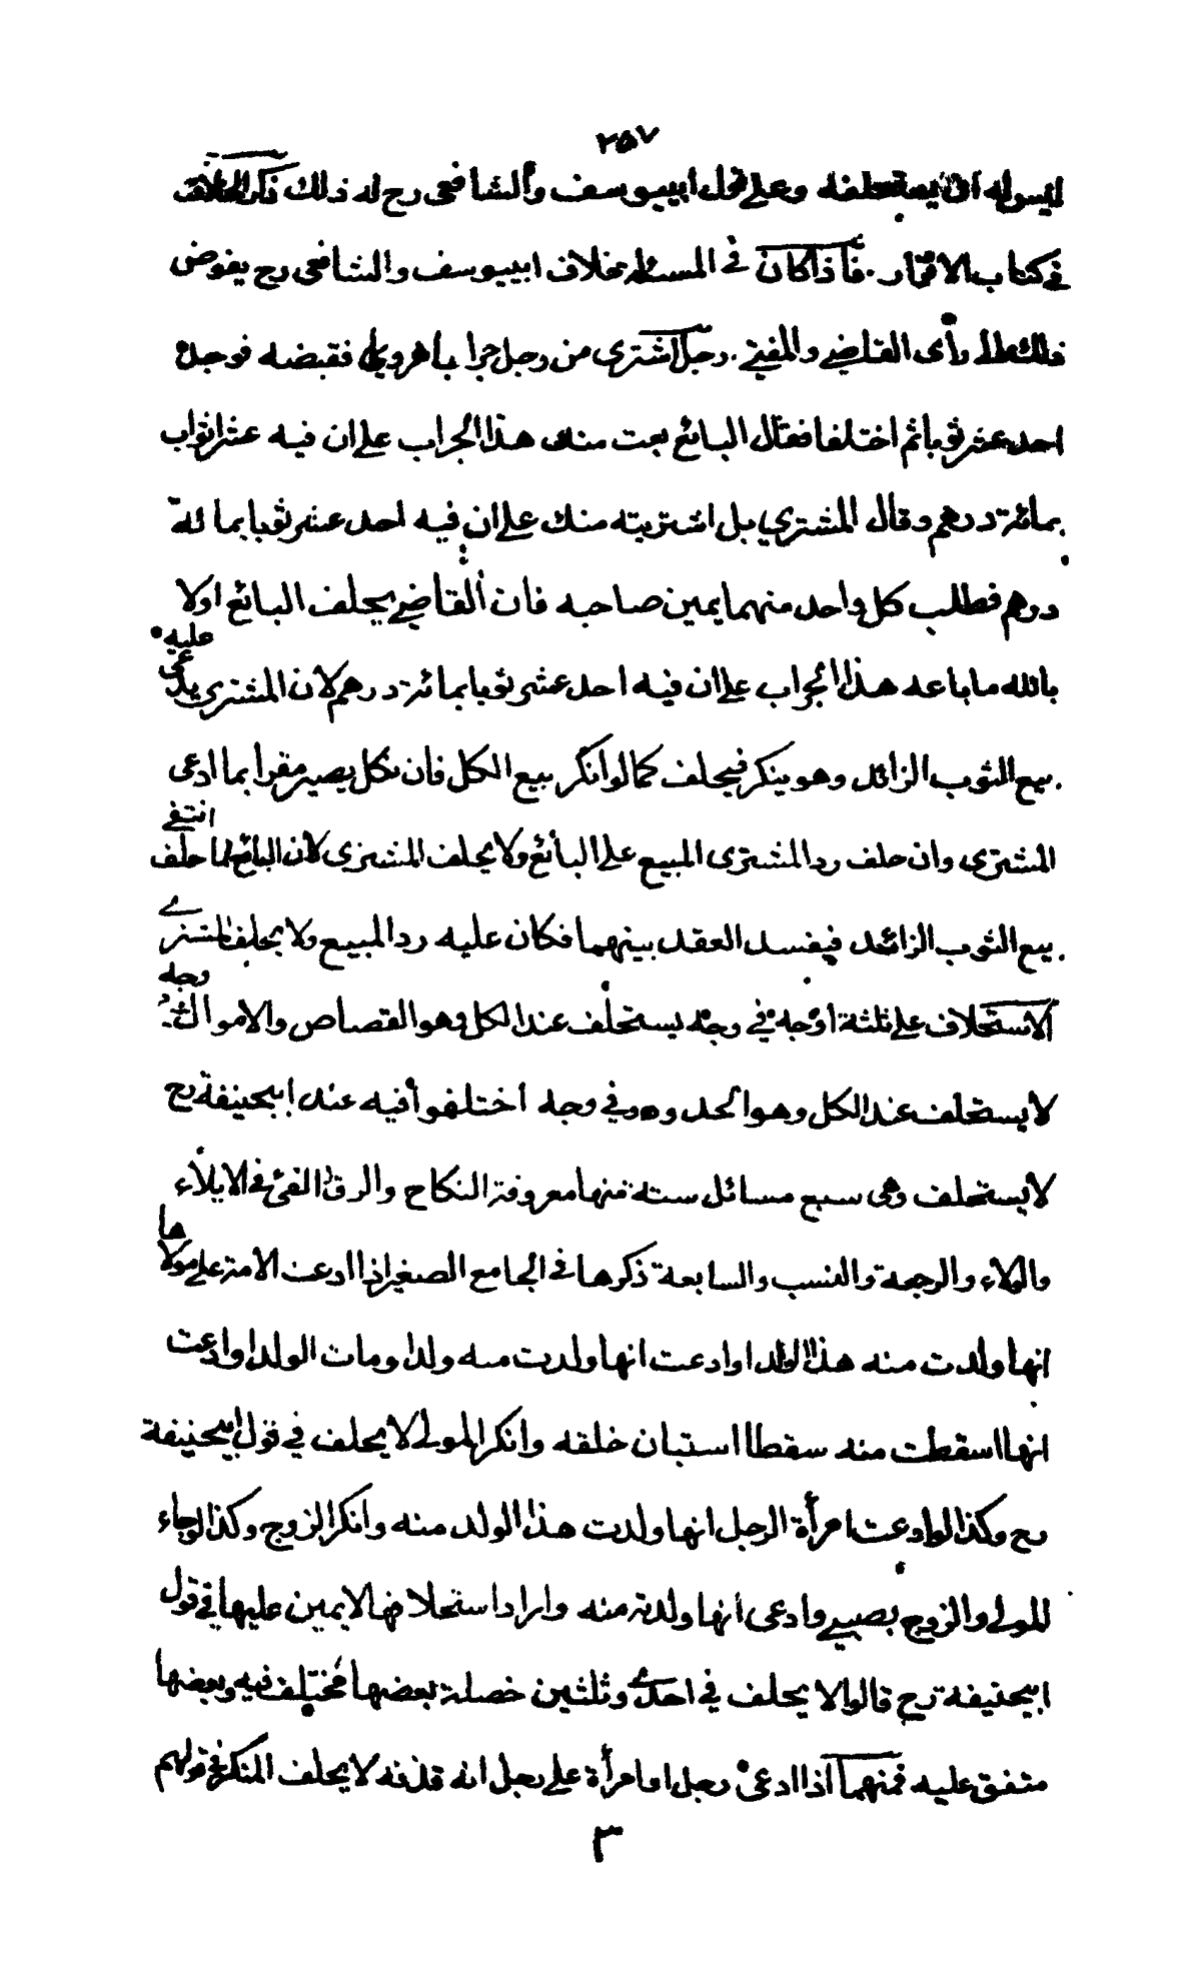 ٢٥٧
ليس له ان يستحلفه وعلى قول ابييوسف والشافعى رح له ذلك ذكر الخلاف
فى كتاب الاقرار . فاذا كان فى المسئلة خلاف ابييوسف والشافعى رح يفوض
ذلك الى رأى القاضى والمفتى . رجل اشترى من رجل جرابا هرويا فقبضه فوجد
احد عشر ثوبا ثم اختلفا فقال البائع بعت منك هذا الجراب على ان فيه عشر اثواب
بمائة درهم وقال المشتري بل اشتريته منك على ان فيه احد عشر ثوبا بمائة
درهم فطلب كل واحد منهما يمين صاحبه فان القاضى يحلف البائع اولا
بالله ما باعه هذا الجراب على ان فيه احد عشر ثوبا بمائة درهم لان المشترى يدعى عليه
بيع الثوب الزائد وهو ينكر فيحلف كما لو انكر بيع الكل فان نكل يصير مقرا بما ادعى
المشترى وان حلف رد المشترى المبيع على البائع ولا يحلف المشترى لان البائع لما حلف انتفى
بيع الثوب الزائد فيفسد العقد بينهما فكان عليه رد المبيع ولا يحلف المشترے
الاستحلاف على ثلثة اوجه فى وجه يستحلف عند الكل وهو القصاص والاموال وفى وجه
لا يستحلف عند الكل وهو الحدود وفي وجه اختلفوا فيه عند ابيحنيفة رح
لا يستحلف وهى سبع مسائل ستة منها معروفة النكاح والرق والفئ فى الايلاء
والولاء والرجعة والنسب والسابعة ذكرها فى الجامع الصغير اذا ادعت الامة على مولاها
انها ولدت منه هذا الولد او ادعت انها ولدت منه ولدا ومات الولد او ادعت
انها اسقطت منه سقطا استبان خلقه وانكر المولى لا يحلف في قول ابيحنيفة
رح وكذا لو ادعت امرأة الرجل انها ولدت هذا الولد منه وانكر الزوج وكذا لو جاء
المولى والزوج بصبي وادعى انها ولدته منه واراد استحلافها لا يمين عليها فى قول
ابيحنيفة رح قالوا لا يحلف في احدى وثلثين خصلة بعضها مختلف فيه وبعضها
متفق عليه فمنها اذا ادعى رجل او امرأة على رجل انه قذفه لا يحلف المنكر فى قولهم
٣